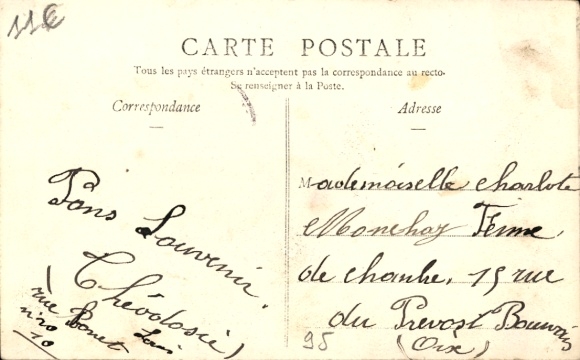 11€
CARTE POSTALE
Tous les pays étrangers n'acceptent pas la correspondance au recto.
Se renseigner à la Poste.
Correspondance
Adresse
Bons Souvenir.
Théodosie
(rue Bonet
n 20
10
Mademoiselle charlote
Monchay Ferme.
de chanhe. 15 rue
du Prevost Beauvais
(Oise)
95